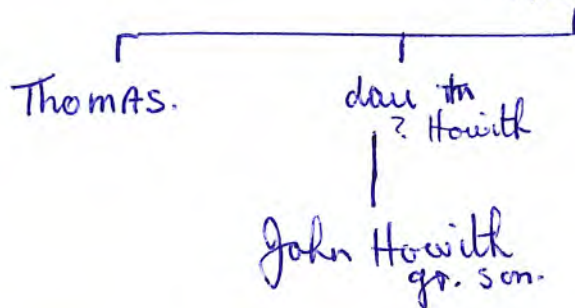 Thomas. dau m
? Howith
John Howith
gr. son.